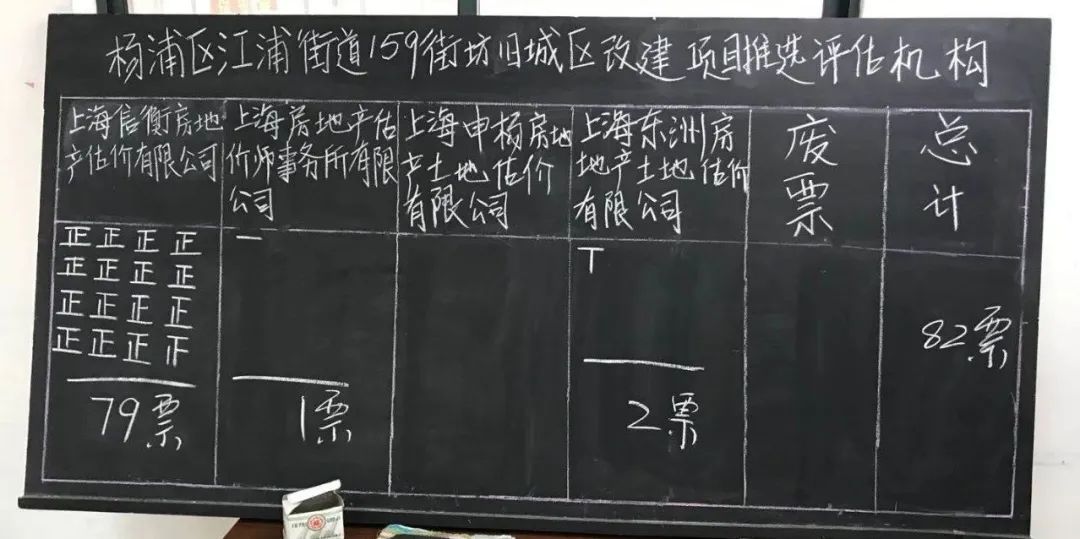 杨浦区江浦街道159街坊旧城区改建项目推选评估机构
上海信衡房地
产估价有限公司
上海房地产估
价师事务所有限
公司
上海申杨房地
产土地估价
有限公司
上海东洲房
地产土地估价
有限公司
废
票
总
计
正正正正
正正正正
正正正正
正正正㱏
79票
一
1票
丅
2票
82票